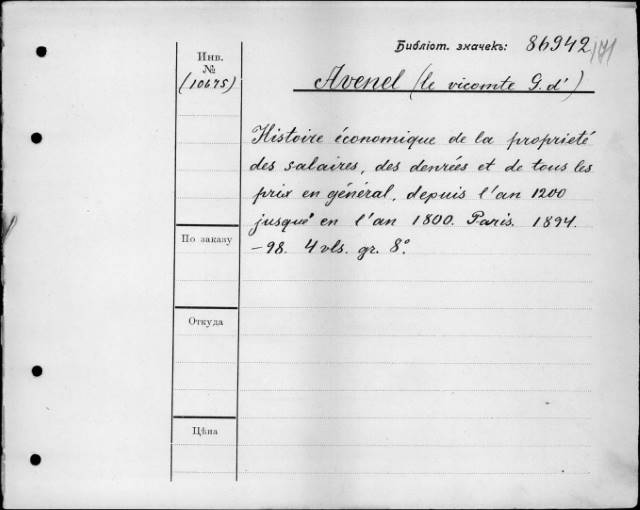 Библіот. значекъ: 86942
Инв.
№
(10675)
Avenel (le vicomte G. d')
Histoire économique de la proprieté
des salaires, des denrées et de tous les
prix en général, depuis l'an 1200
jusqué en l'an 1800. Paris. 1894.
-98. 4 vls. gr. 8°.
По заказу
Откуда
Цѣна